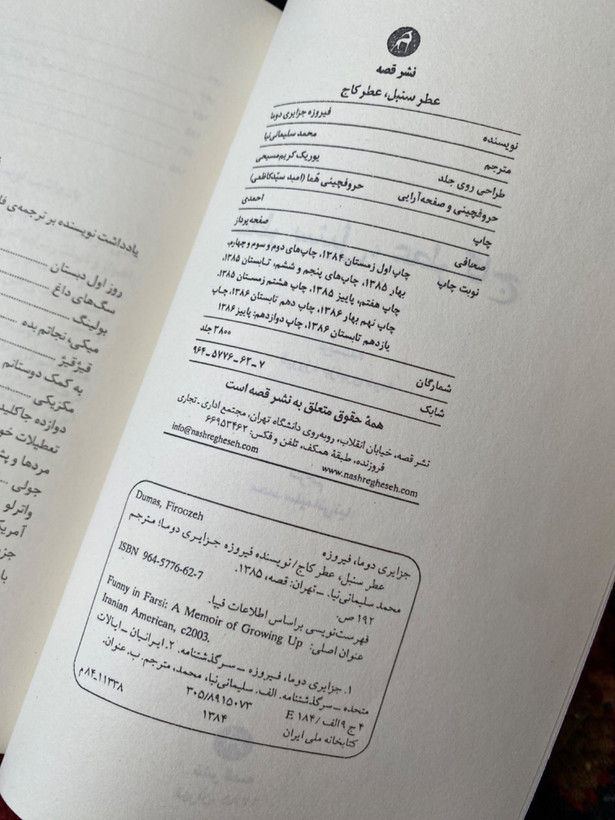 نشر قصه
عطر سنبل، عطر کاج
نویسنده فیروزه جزایری دوما
مترجم محمد سلیمانی‌نیا
طراحی روی جلد یوریک کریم‌مسیحی
حروفچینی و صفحه‌آرایی حروفچینی هُما (امید سیّدکاظمی)
چاپ احمدی
صحافی صفحه‌پرداز
نوبت چاپ چاپ اول زمستان ۱۳۸۴، چاپ‌های دوم و سوم و چهارم،
بهار ۱۳۸۵، چاپ‌های پنجم و ششم، تـابستان ۱۳۸۵،
چاپ هفتم، پاییز ۱۳۸۵، چاپ هشتم زمستان ۱۳۸۵،
چاپ نهم بهار ۱۳۸۶، چاپ دهم تابستان ۱۳۸۶، چـاپ
یازدهم تابستان ۱۳۸۶، چاپ دوازدهم: پاییز ۱۳۸۶
شمارگان ۳۸۰۰ جلد
شابک ۹۶۴-۵۷۷۶-۶۲-۷
همهٔ حقوق متعلق به نشر قصه است
نشر قصه، خیابان انقلاب، روبه‌روی دانشگاه تهران، مجتمع اداری ـ تجاری
فروزنده، طبقهٔ همکف، تلفن و فکس: ۶۶۹۵۳۴۶۲
www.nashregheseh.com info@nashregheseh.com
جزایری دوما، فیروزه Dumas, Firoozeh
عطر سنبل، عطر کاج/ نویسنده فیروزه جـزایـری دومـا؛ مترجم
محمد سلیمانی‌نیا. ـ تهران: قصه، ۱۳۸۵.
۱۹۲ ص. ISBN 964-5776-62-7
فهرست‌نویسی براساس اطلاعات فیپا.
عنوان اصلی: Funny in Farsi: A Memoir of Growing Up
Iranian American, c2003.
۱. جزایری دوما، فیروزه ـ سـرگذشتنامه. ۲. ایرانیان ـ ایـالات
متحده ـ سرگذشتنامه. الف. سلیمانی‌نیا، محمد، مترجم. ب. عنوان.
۴ ج ۹ الف / E ۱۸۴ ۳۰۵/۸۹۱۵۰۷۳
کتابخانه ملی ایران ۱۳۸۴ ۸۴-۱۱۳۳۸م
یادداشت نویسنده بر ترجمه‌ی
روز اول دبستان
سگ‌های داغ
بولینگ
میکی، نجاتم بده
قیژقیژ
به کمک دوستانم
مکزیکی
دوازده جاکلید
تعطیلات
مردها و
جولی
واترلو